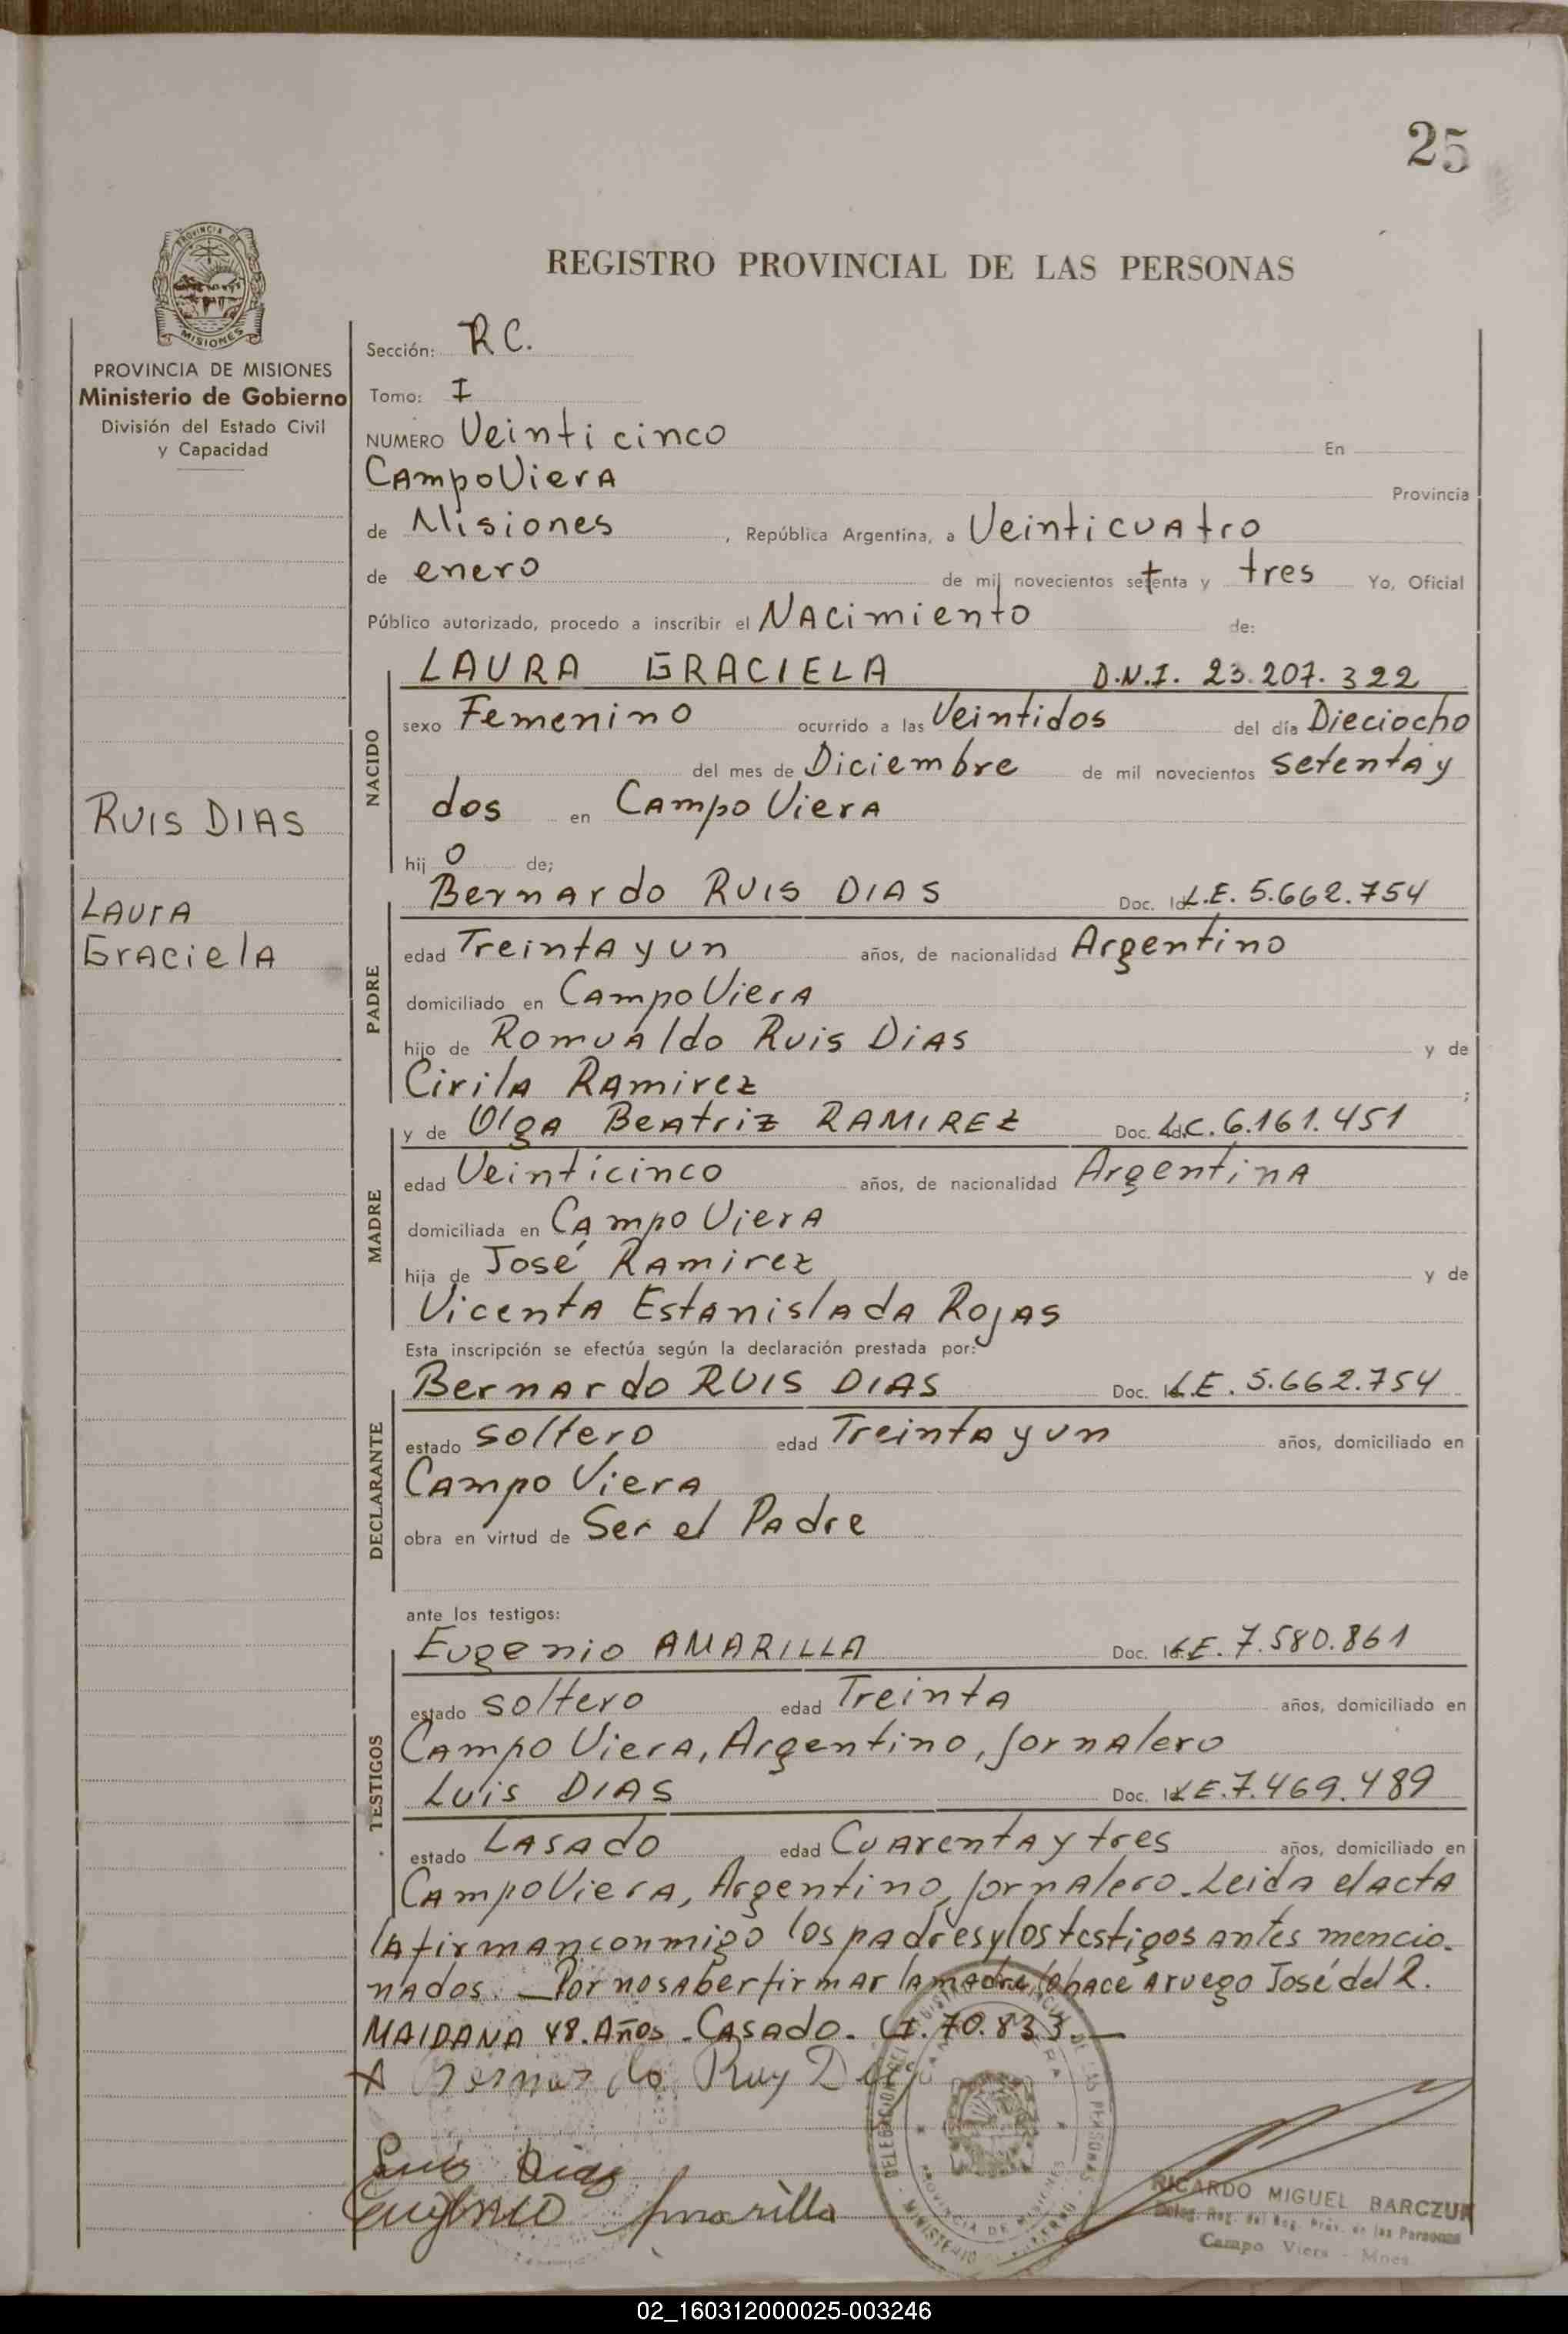 25
REGISTRO PROVINCIAL DE LAS PERSONAS
PROVINCIA DE
MISIONES
PROVINCIA DE MISIONES
Ministerio de Gobierno
División del Estado Civil
y Capacidad
RUIS DIAS
LAUrA
GrACielA
Sección: R C.
Tomo: I
NUMERO Veinti cinco En
CAmpo VierA Provincia
de Misiones , República Argentina, a Veinti cuAtro
de enero de mil novecientos setenta y tres Yo, Oficial
Público autorizado, procedo a inscribir el NACimiento de:
NACIDO
LAURA GRACIELA D.N.I. 23.207.322
sexo Femenino ocurrido a las Veintidos del día Dieciocho
del mes de Diciembre de mil novecientos setenta y
dos en CAmpo VierA
hij o de;
PADRE
Bernardo RUIS DIAS Doc. Id. L.E. 5.662.754
edad TreintA y un años, de nacionalidad Argentino
domiciliado en CAmpo VierA
hijo de Romualdo Ruis DiAs y de
CirilA RAmirez ;
MADRE
y de OlgA BeAtriz RAMIREZ Doc. Id. L.C. 6.161.451
edad Veinticinco años, de nacionalidad ArgentinA
domiciliada en CAmpo VierA
hija de José RAmirez y de
VicentA EstAnislAdA RojAs
Esta inscripción se efectúa según la declaración prestada por:
DECLARANTE
Bernardo RUIS DIAS Doc. Id. L.E. 5.662.754
estado soltero edad TreintA y un años, domiciliado en
CAmpo VierA
obra en virtud de Ser el PAdre
ante los testigos:
TESTIGOS
Eugenio AMARILLA Doc. Id. L.E. 7.580.861
estado soltero edad TreintA años, domiciliado en
CAmpo VierA, Argentino, JornAlero
Luis DIAS Doc. Id. L.E. 7.469.489
estado CAsAdo edad CuArentA y tres años, domiciliado en
CAmpo VierA, Argentino, JornAlero. Leida el actA
lA firman conmigo los pAdres y los testigos Antes mencio-
nados. _ Por no sAber firmar lA mAdre lo hace A ruego José del R.
MAIDANA 48. Años - CAsado. CI. 70.833.—
Bernardo Ruy
Luis Dias
Eugenio Amarilla
DELEGACION DEL REGISTRO PROVINCIAL DE LAS PERSONAS
CAMPO VIERA
PROVINCIA DE MISIONES
MINISTERIO DE GOBIERNO
RICARDO MIGUEL BARCZUK
Deleg. Reg. del Reg. Prov. de las Personas
Campo Viera - Mnes.
02_160312000025-003246